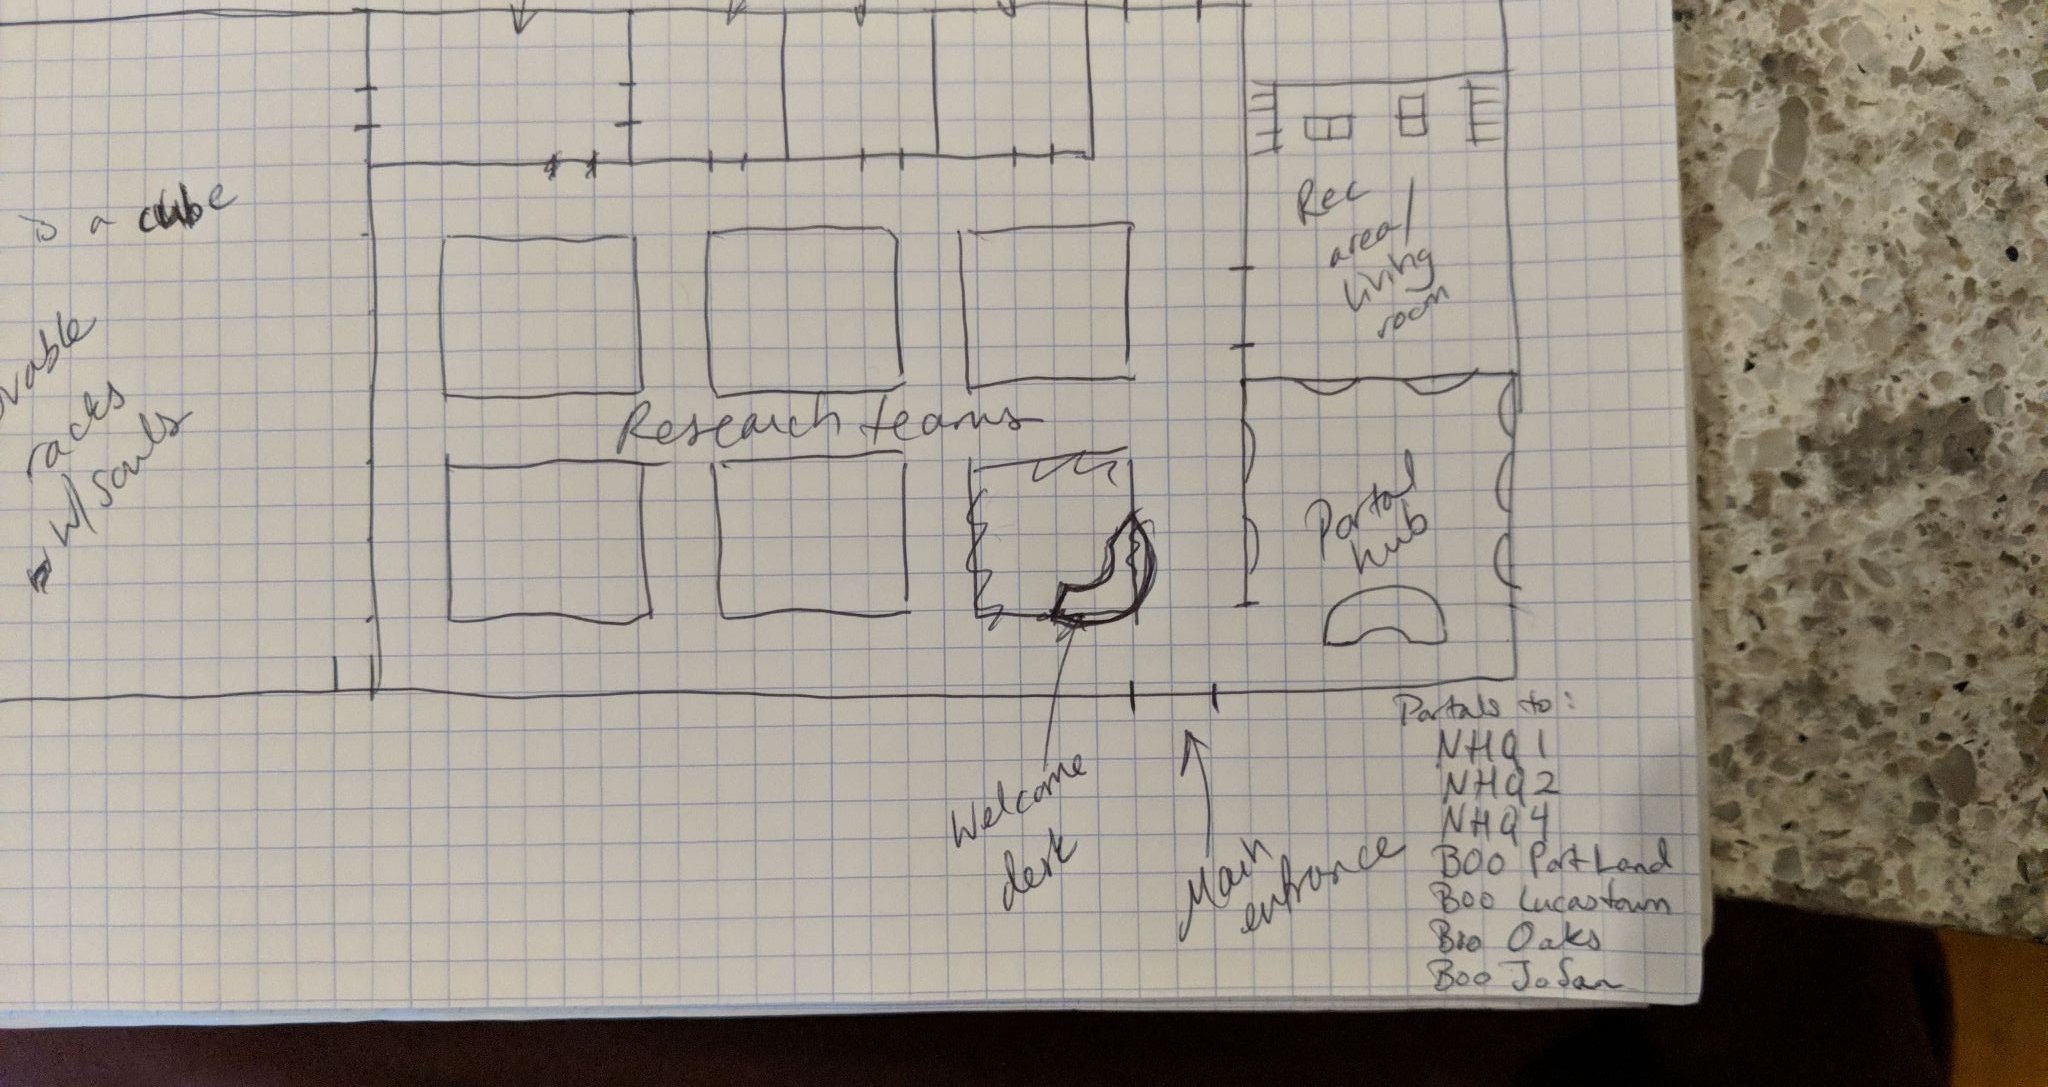 is a cube
racks
w/ souls
Rec
area/
living
room
Research teams
Portal
hub
Welcome
desk
Main
entrance
Portals to:
NHQ 1
NHQ 2
NHQ 4
BOO Portland
BOO Lucastown
BOO Oaks
BOO JoSan